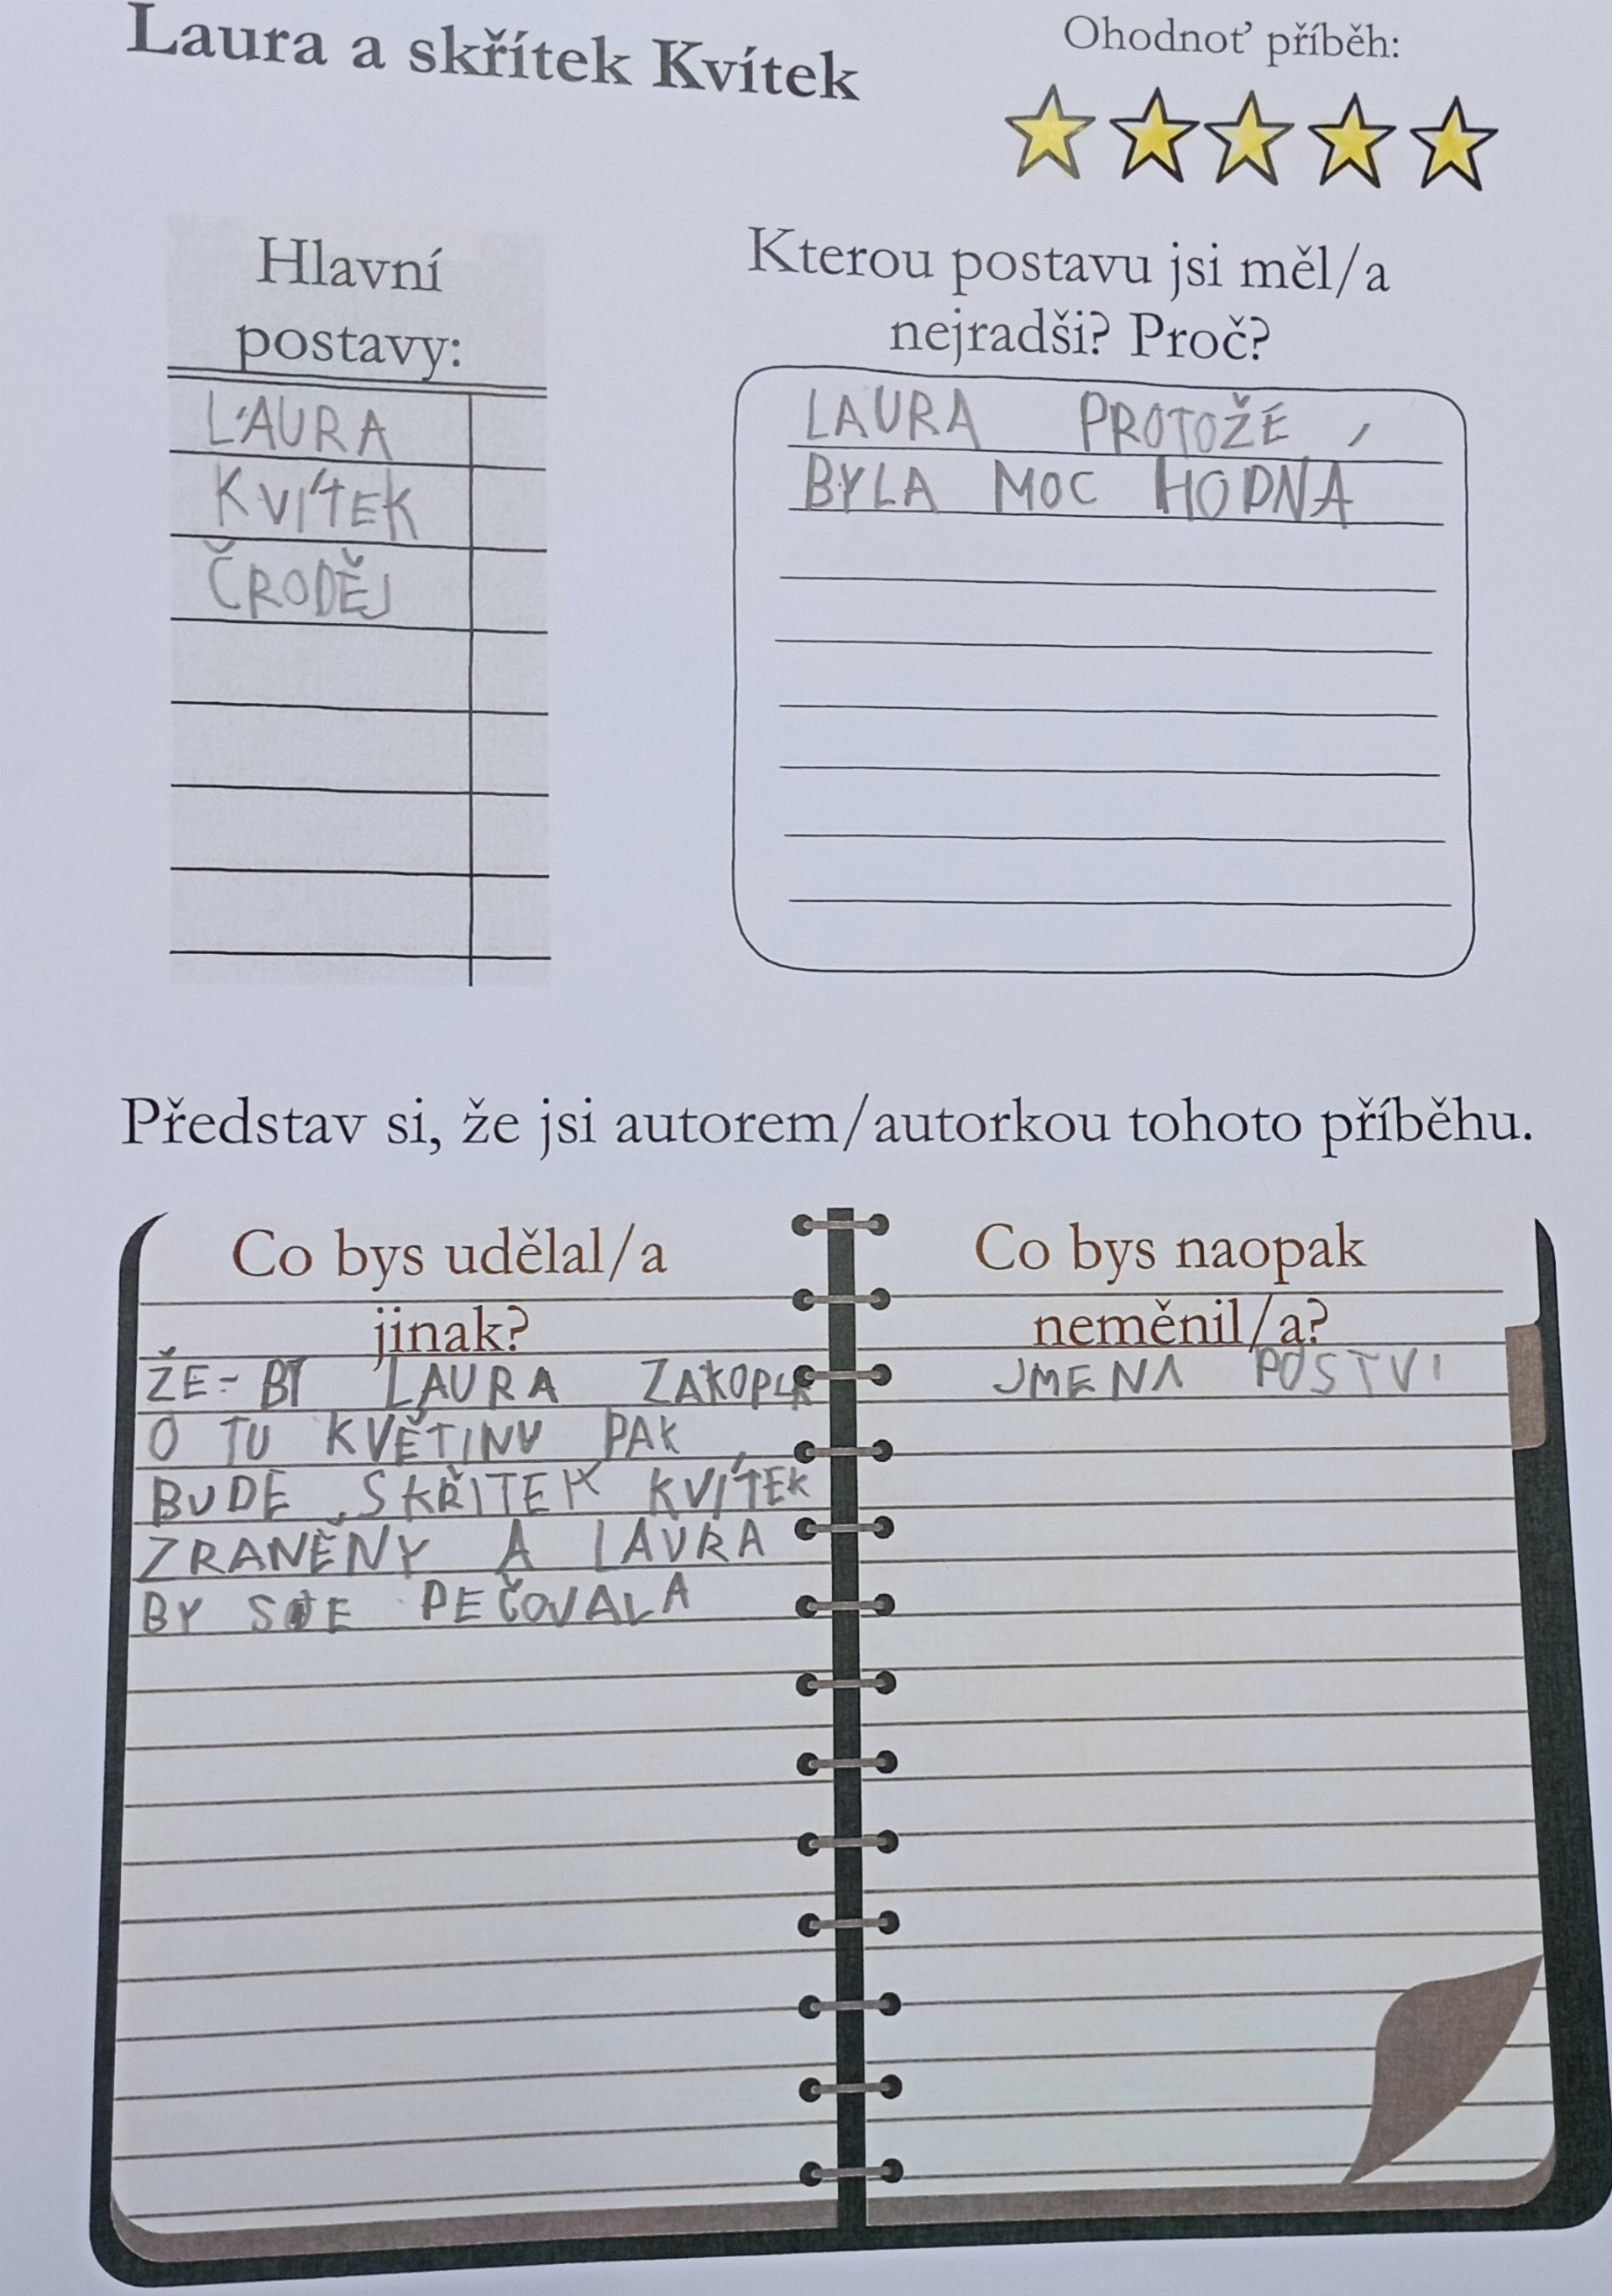 Laura a skřítek Kvítek
Ohodnoť příběh:
Hlavní
postavy:
LAURA
KVÍTEK
ČRODĚJ
Kterou postavu jsi měl/a
nejradši? Proč?
LAURA PROTOŽE
BYLA MOC HODNÁ
Představ si, že jsi autorem/autorkou tohoto příběhu.
Co bys udělal/a
jinak?
ŽE-BY LAURA ZAKOPLA
O TU KVĚTINU PAK
BUDE SKŘITEK KVÍTEK
ZRANĚNY A LAURA
BY PEČOVALA
Co bys naopak
neměnil/a?
JMENA POSTVI